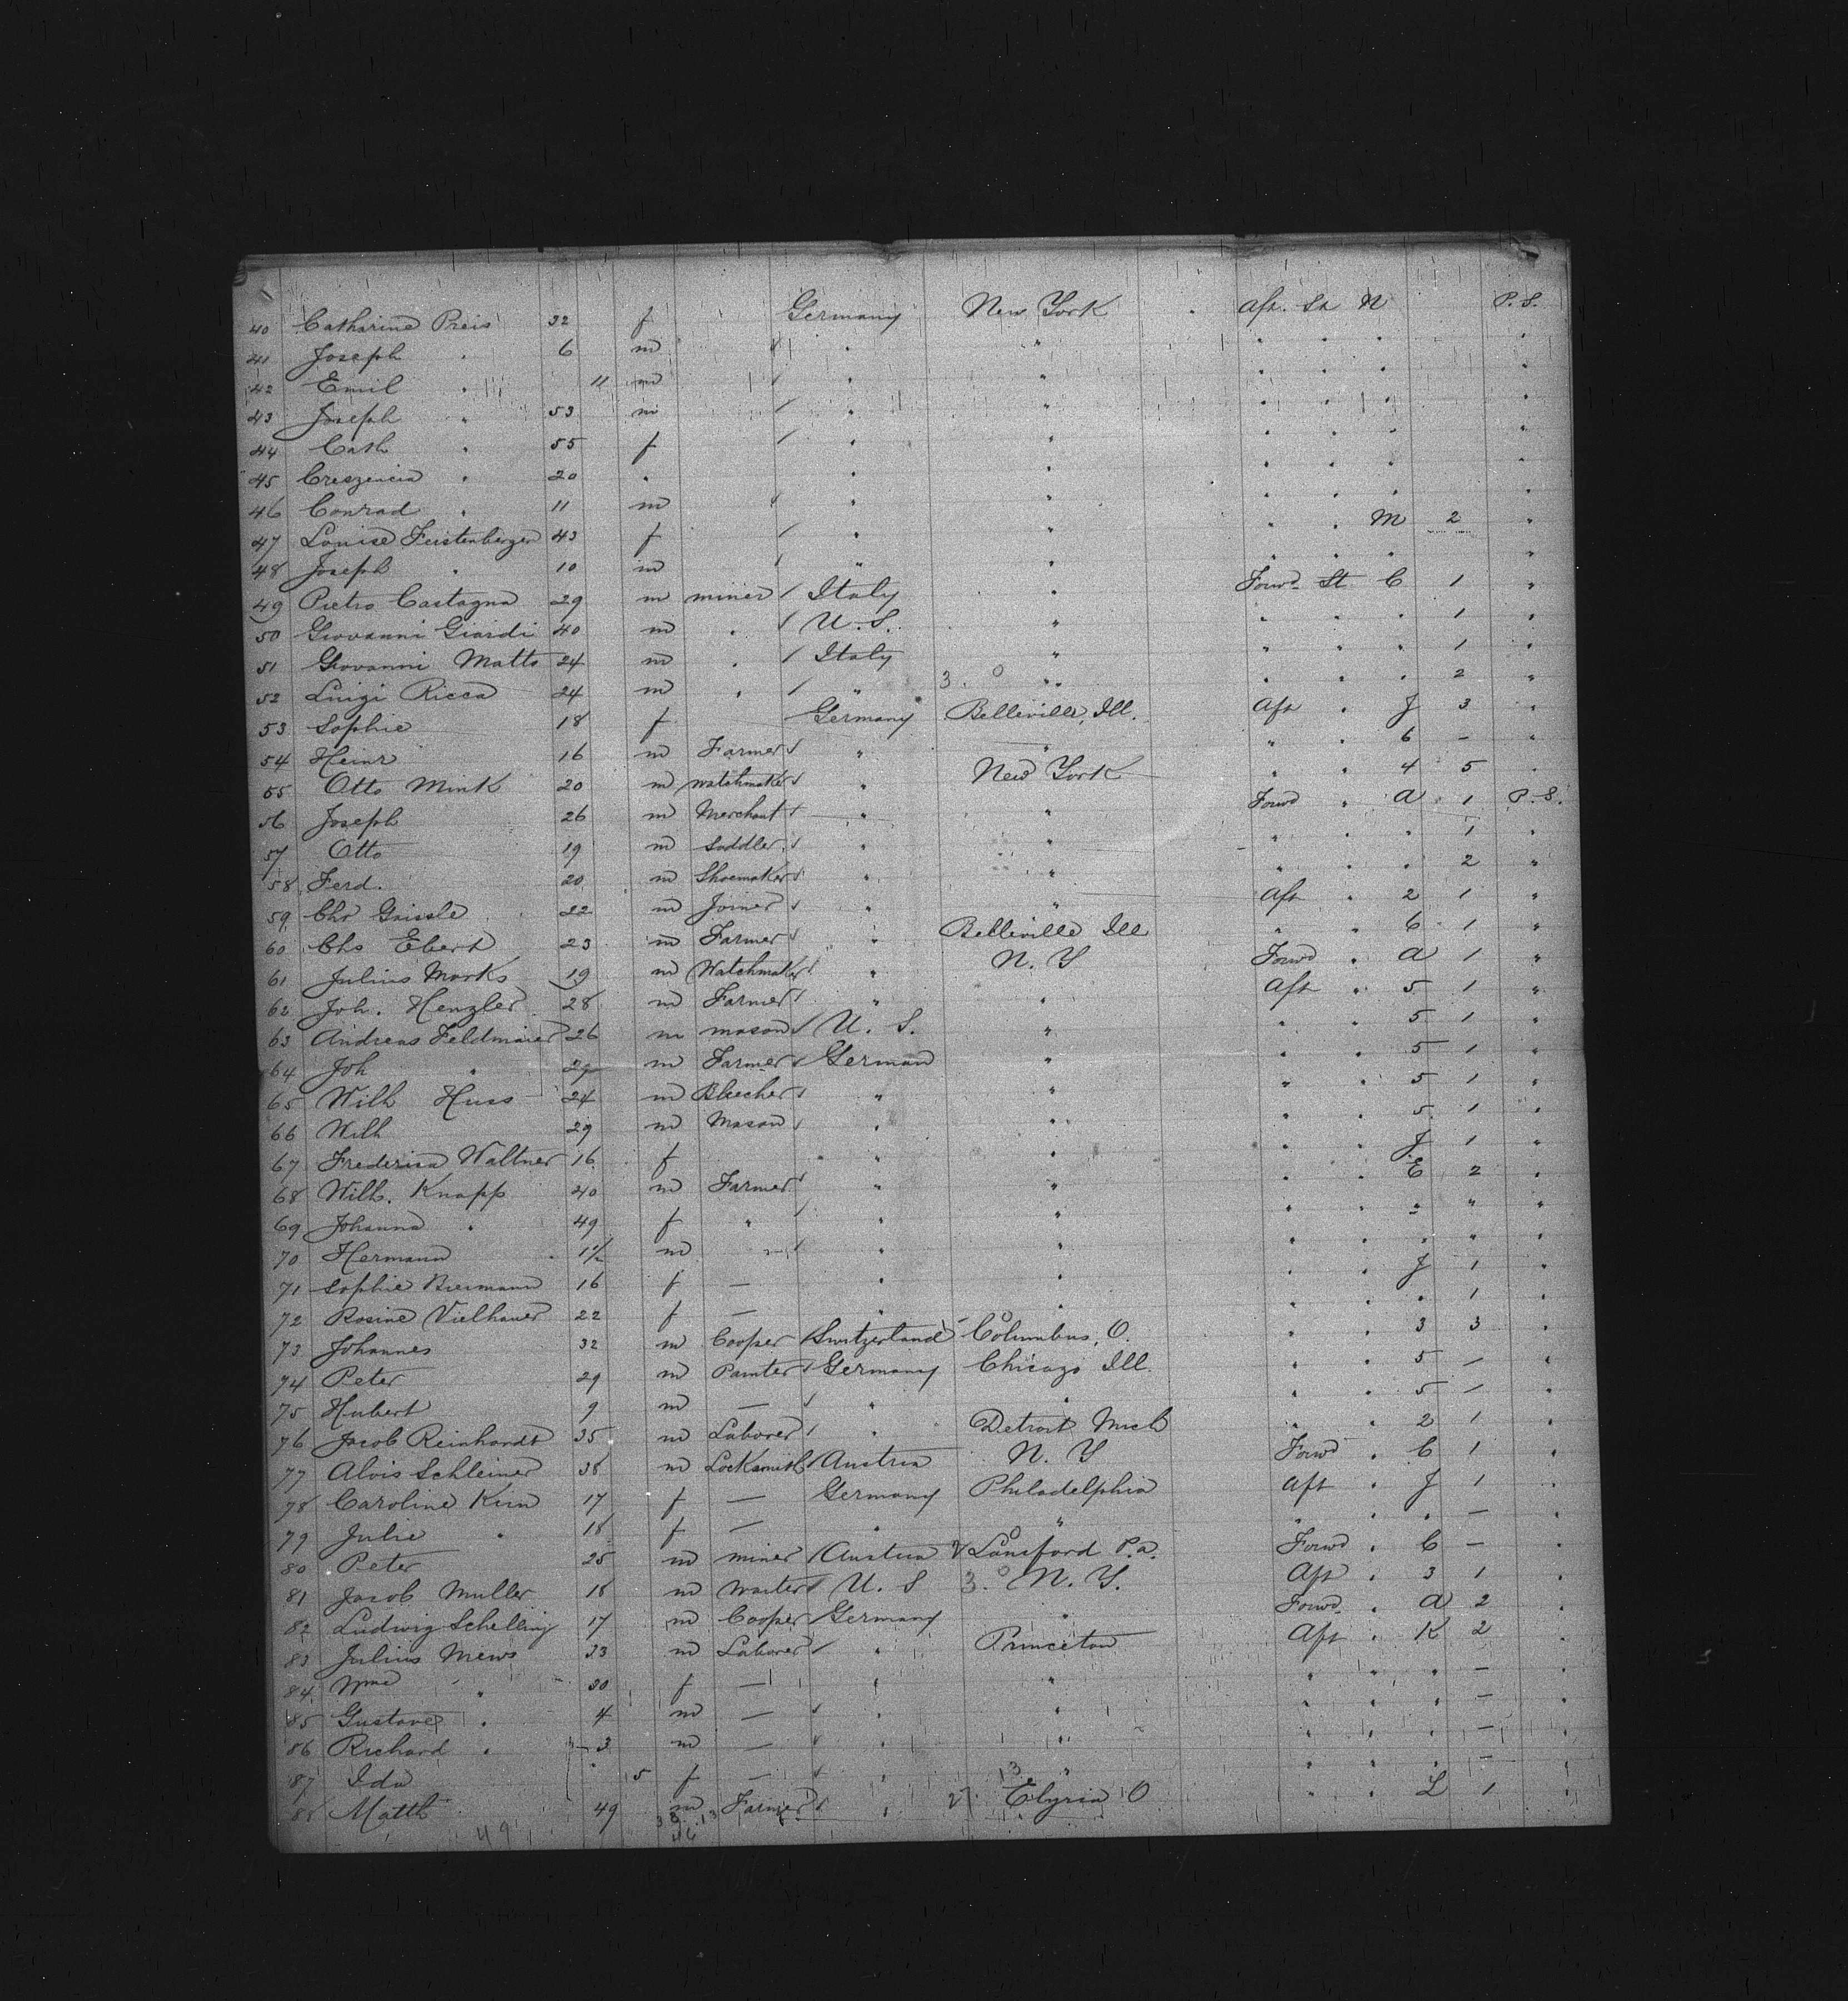 40 Catharine Preis 32 f Germany New York Aft. St N P.S.
41 Joseph " 6 m " " " " " "
42 Emil " 11 m " " " " " "
43 Joseph " 53 m " " " " " "
44 Cath " 55 f " " " " " "
45 Creszencia " 20 " " " " " " "
46 Conrad " 11 m " " " " " "
47 Louise Feistenberger 43 f " " " " M 2 "
48 Joseph " 10 m " " " " " "
49 Pietro Castagna 29 m miner Italy " Forwd St C 1 "
50 Giovanni Giardi 40 m " U.S. " " " " 1 "
51 Giovanni Matto 24 m " Italy " " " " 1 "
52 Luigi Ricca 24 m " " 3. 0 " " " " 2 "
53 Sophie 18 f Germany Belleville, Ill. Aft " J 3 "
54 Heinr 16 m Farmer " " " " 6 – "
55 Otto Mink 20 m Watchmaker " New York " " 4 5 "
56 Joseph 26 m Merchant " " Forwd " A 1 P.S.
57 Otto 19 m Saddler " " " " " 1 "
58 Ferd. 20 m Shoemaker " " " " " 2 "
59 Chr Grissle 22 m Joiner " " Aft " 2 1 "
60 Chs Ebert 23 m Farmer " Belleville Ill " " 6 1 "
61 Julius Marks 19 m Watchmaker " N. Y Forwd " A 1 "
62 Joh. Henzler 28 m Farmer " " Aft " 5 1 "
63 Andreas Feldmaier 26 m mason U. S. " " " 5 1 "
64 Joh " m Farmer German " " " 5 1 "
65 Wilh Huss 24 m " " " " 5 1 "
66 Wilh 29 m Mason " " " " 5 1 "
67 Frederica Waltner 16 f " " " " J 1 "
68 Wilh. Knapp 40 m Farmer " " " " E 2 "
69 Johanna " 49 f " " " " " " " "
70 Hermann 1½ m " " " " " " " "
71 Sophie Biermann 16 f — " " " " J 1 "
72 Rosine Vielhauer 22 f — " " " " " 1 "
73 Johannes 32 m Cooper Switzerland Columbus, O. " " 3 3 "
74 Peter 29 m Painter Germany Chicago Ill. " " 5 – "
75 Hubert 9 m — " " " " 5 – "
76 Jacob Reinhardt 35 m Laborer " Detroit Mich " " 2 1 "
77 Alois Schleiner 38 m Locksmith Austria N. Y Forwd " C 1 "
78 Caroline Kun 17 f — Germany Philadelphia Aft " J 1 "
79 Julie " 18 f — " " " " " – "
80 Peter 25 m miner Austria Lansford P.a. Forwd " C – "
81 Jacob Muller 18 m Waiter U. S 3. 0 N. Y. Aft " 3 1 "
82 Ludwig Schelling 17 m Cooper Germany " Forwd " A 2 "
83 Julius Mews 33 m Laborer " Princeton Aft " K 2 "
84 Wme " 30 f — " " " " " – "
85 Gustave " 4 m — " " " " " – "
86 Richard " 3 m — " " " " " – "
87 Ida " 5 f — " 13 " " " " – "
88 Matth 49 m Farmer " Elyria O " " L 1 "
49